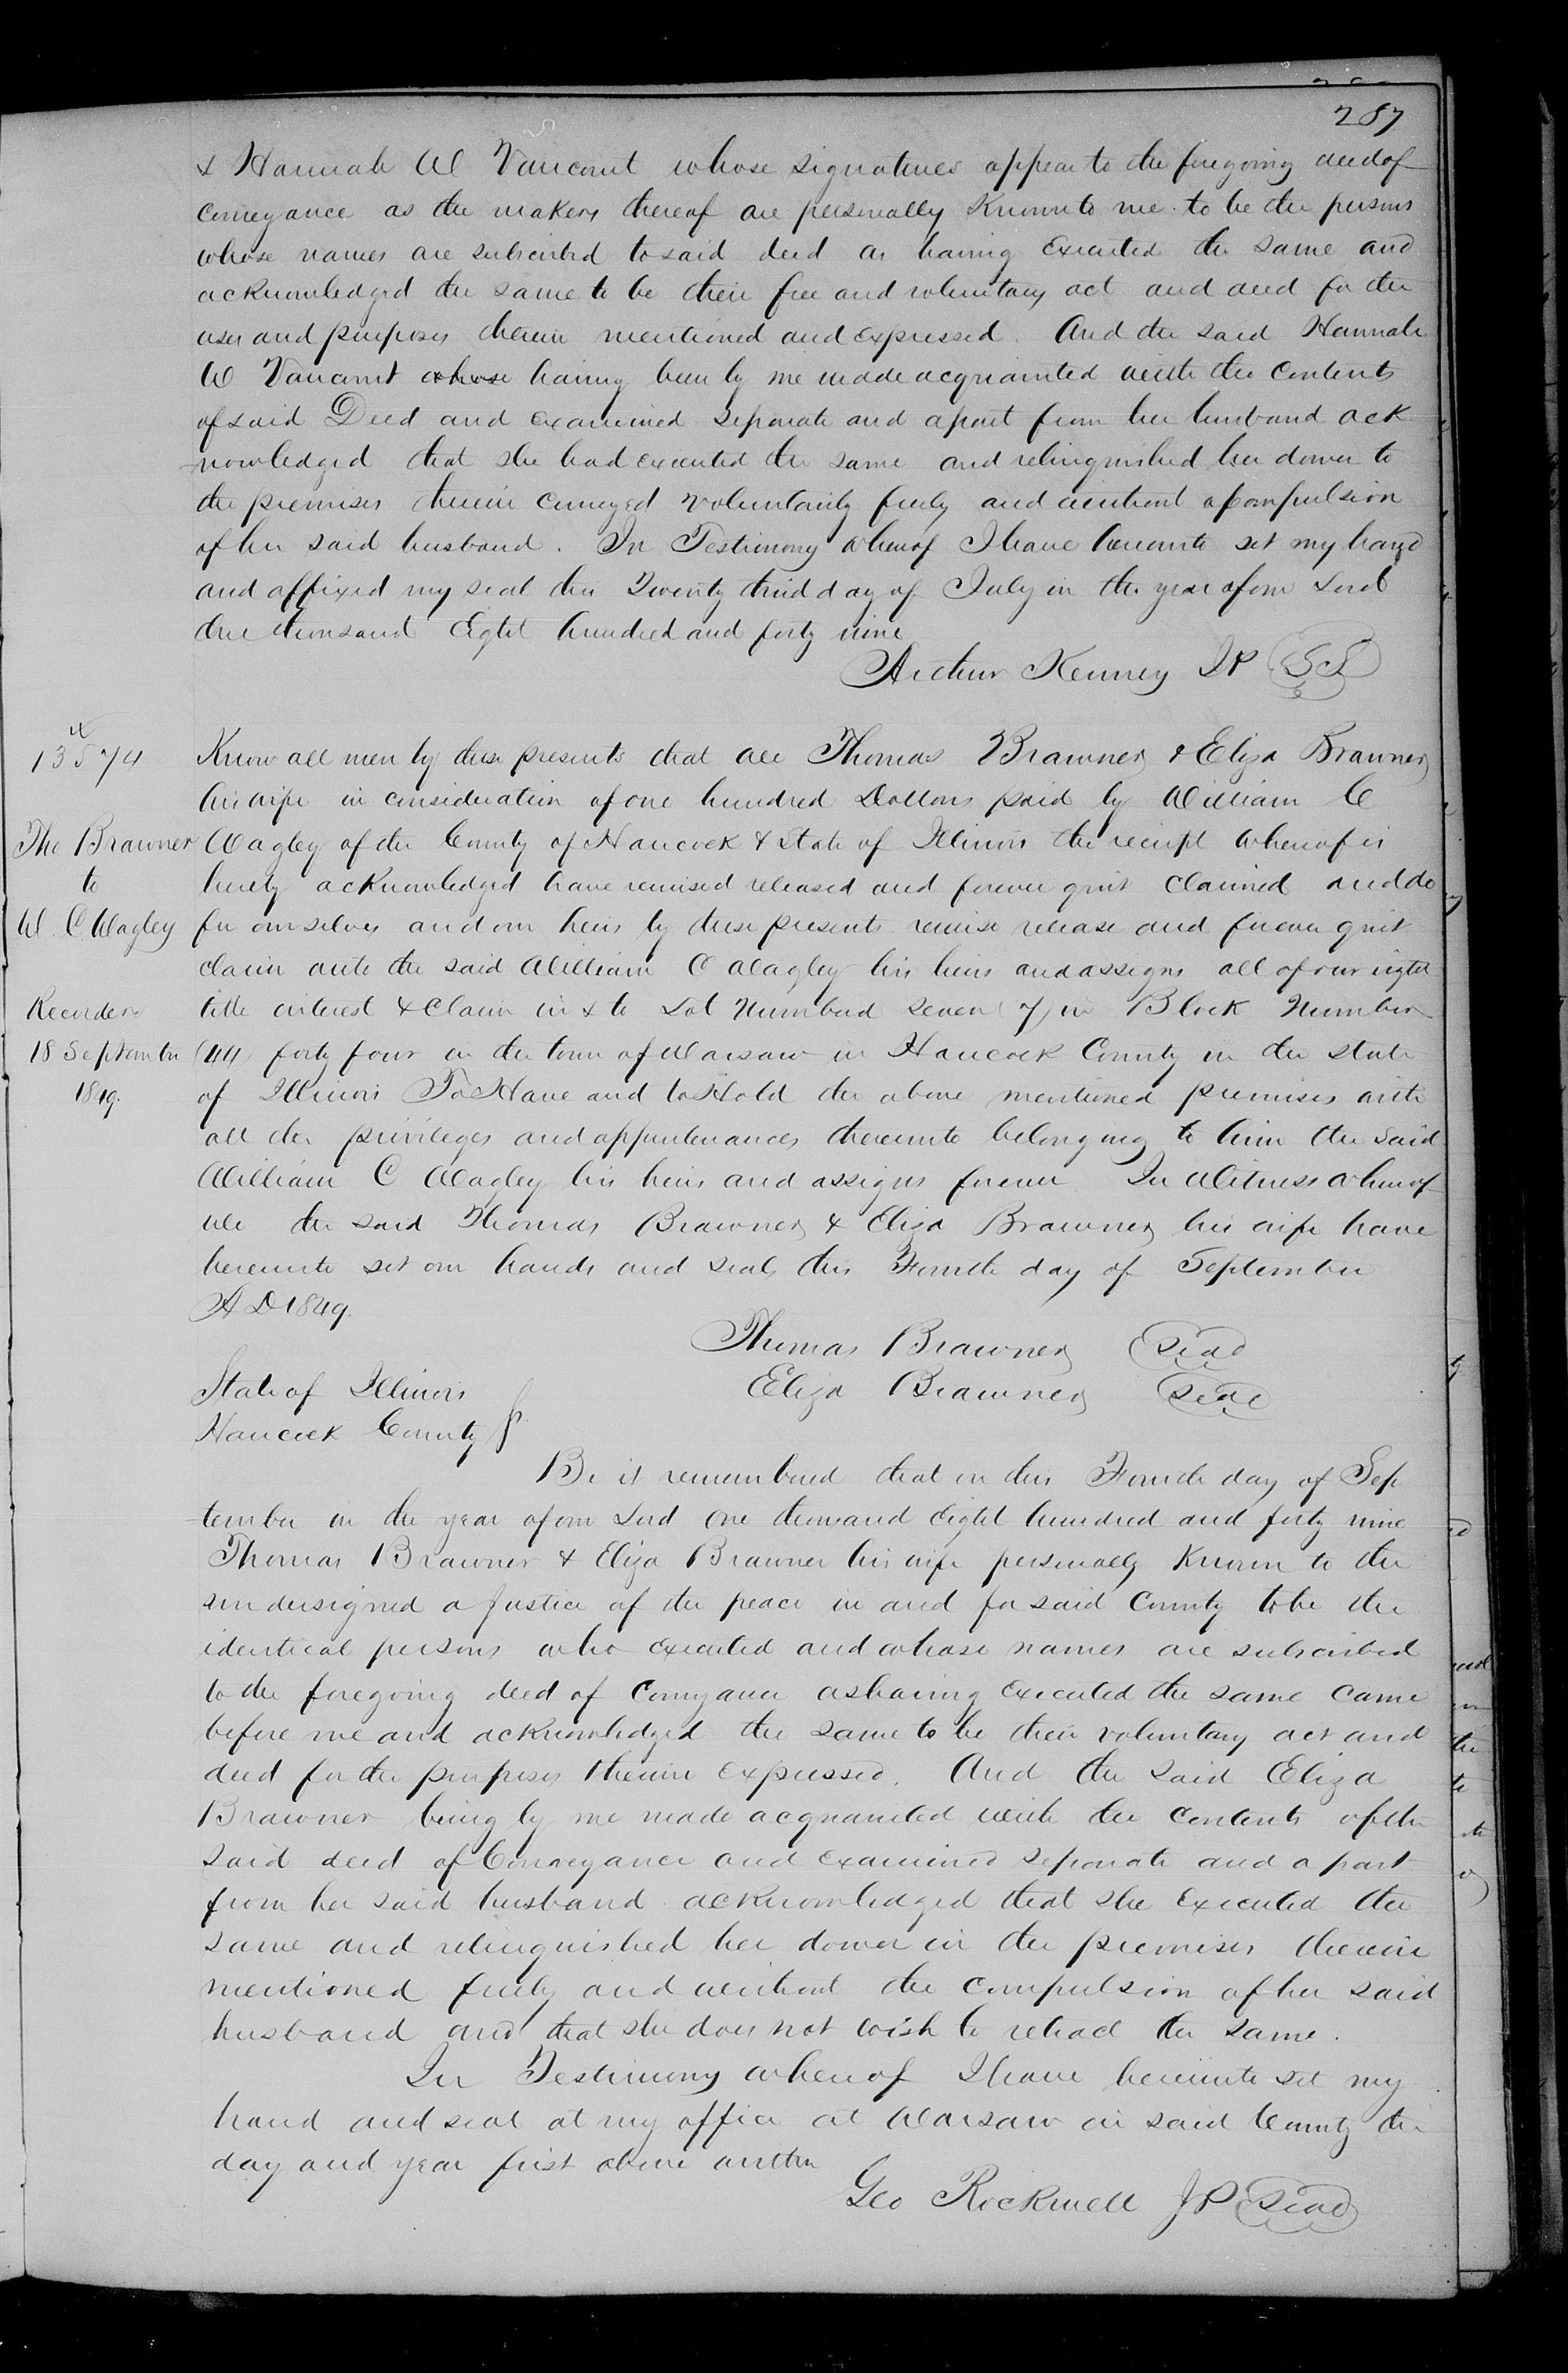 287
& Hannah W Vancourt whose signatures appear to the foregoing deed of
conveyance as the makers thereof are personally Known to me to be the persons
whose names are subscribed to said deed as having Executed the same and
acknowledged the same to be their free and voluntary act and deed for the
uses and purposes therein mentioned and expressed. And the said Hannah
W Vancourt whose having been by me made acquainted with the Contents
of said Deed and examined separate and apart from her husband ack
-nowledged that she had executed the same and relinquished her dower to
the premises therein conveyed voluntarily freely and without compulsion
of her said husband. In Testimony whereof I have hereunto set my hand
and affixed my seal this Twenty third day of July in the year of our Lord
One thousand Eight hundred and forty nine
Arthur Kenney JP LS
13574
Tho Brawner
to
W. C Wagley
Recorded
18 September
1849.
Know all men by these presents that we Thomas Brawner & Eliza Brawner
his wife in consideration of one hundred Dollars paid by William C
Wagley of the County of Hancock & State of Illinois the receipt whereof is
hereby acknowledged have remised released and forever quit claimed and do
for ourselves and our heirs by these presents remise release and forever quit
claim unto the said William C Wagley his heirs and assigns all of our right
title interest & claim in & to Lot Numbered seven (7) in Block Number
(44) forty four in the town of Warsaw in Hancock County in the State
of Illinois To Have and to Hold the above mentioned premises with
all the privileges and appurtenances thereunto belonging to him the said
William C Wagley his heirs and assigns forever In Witness whereof
We the said Thomas Brawner & Eliza Brawner his wife have
hereunto set our hands and seals this Fourth day of September
A D 1849.
Thomas Brawner Seal
Eliza Brawner Seal
State of Illinois
Hancock County
Be it remembered that on this Fourth day of Sep
-tember in the year of our Lord one thousand eight hundred and forty nine
Thomas Brawner & Eliza Brawner his wife personally Known to the
undersigned a Justice of the peace in and for said County to be the
identical persons who executed and whose names are subscribed
to the foregoing deed of Conveyance as having Executed the same came
before me and acknowledged the same to be their voluntary act and
deed for the purposes therein expressed. And the said Eliza
Brawner being by me made acquainted with the Contents of the
said deed of Conveyance and examined separate and apart
from her said husband acknowledged that she Executed the
same and relinquished her dower in the premises therein
mentioned freely and without the compulsion of her said
husband and that she does not wish to retract the same.
In Testimony whereof I have hereunto set my
hand and seal at my office at Warsaw in said County the
day and year first above written
Geo Rockwell JP Seal